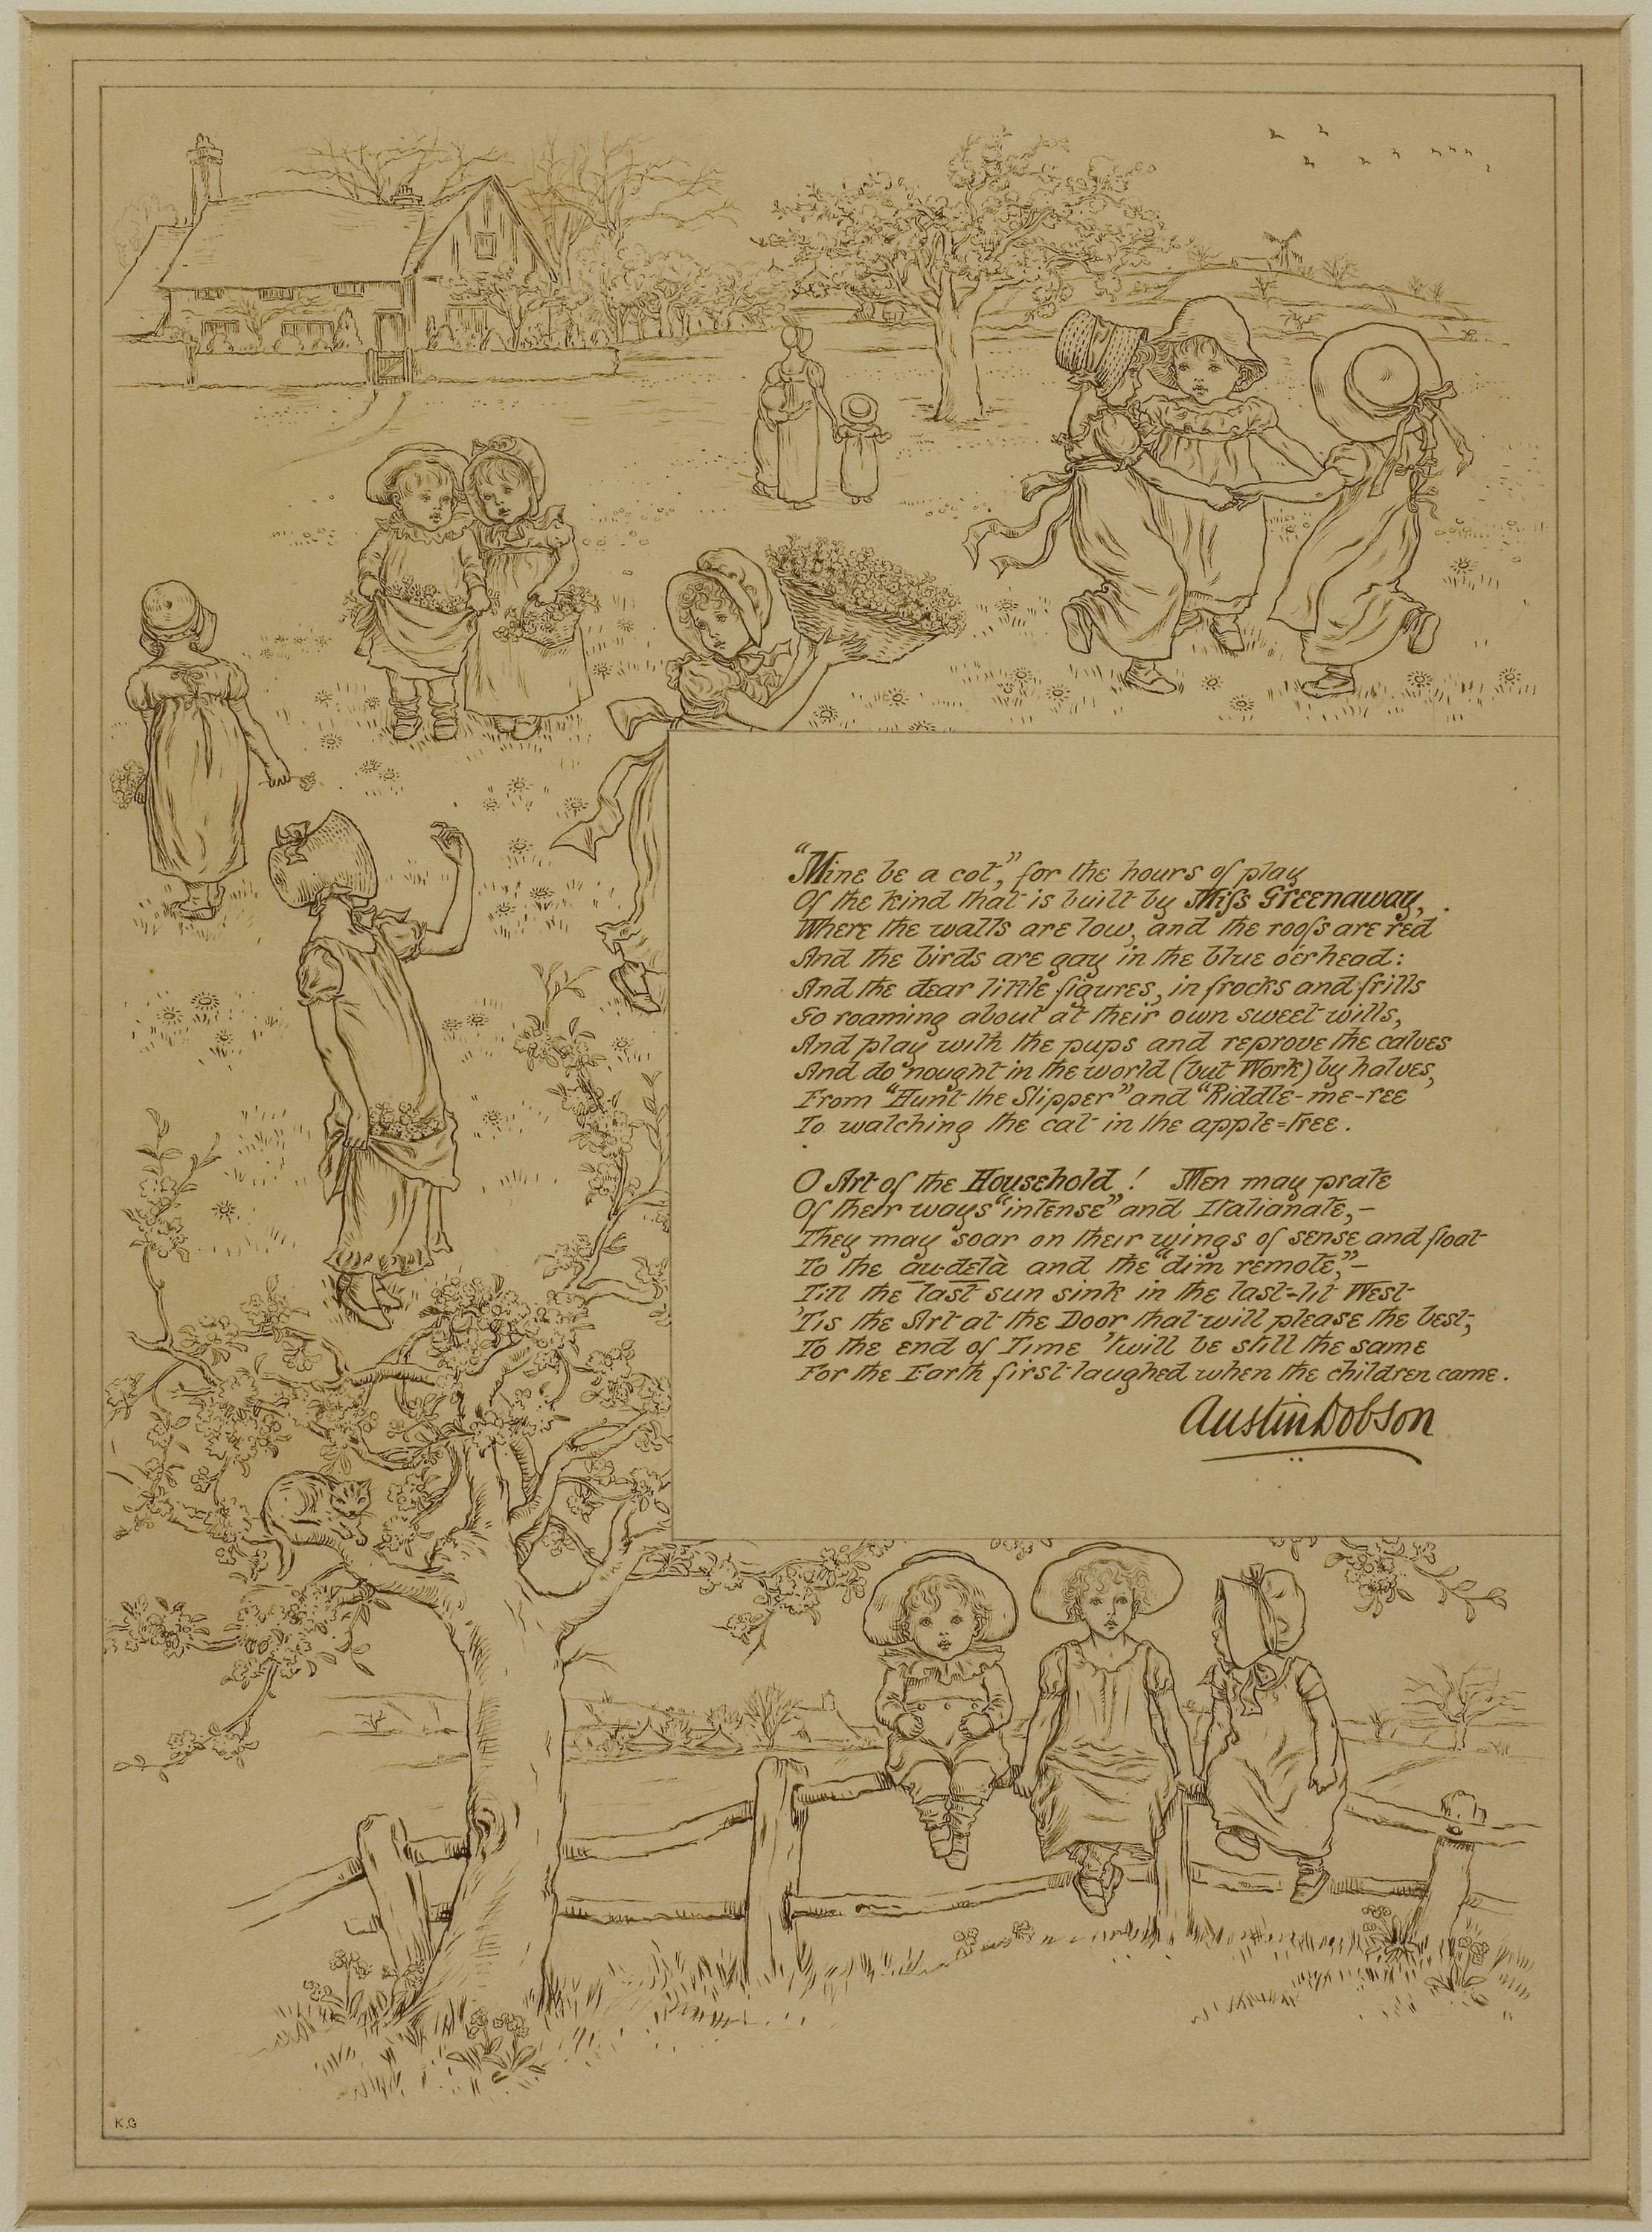 "Mine be a cot," for the hours of play
Of the kind that is built by Miſs Greenaway,
Where the walls are low, and the roofs are red
And the birds are gay in the blue o'erhead:
And the dear little figures, in frocks and frills
Go roaming about at their own sweet wills,
And play with the pups and reprove the calves
And do nought in the world (but Work) by halves,
From "Hunt the Slipper" and "Riddle-me-ree
To watching the cat in the apple=tree.
O Art of the Household! Men may prate
Of their ways "intense" and Italianate,—
They may soar on their wings of sense and float
To the au-delà and the "dim remote,"—
Till the last sun sink in the last-lit West
'Tis the Art at the Door that will please the best;
To the end of Time 'twill be still the same
For the Earth first laughed when the children came.
Austin Dobson
K.G